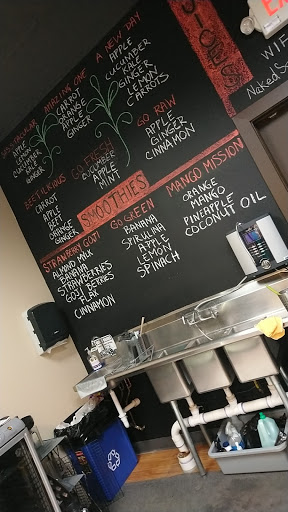 JUICES
WASSUP SUGAR
APPLE
LEMON
CUCUMBER
KALE
GINGER
AMAZING ONE
CARROT
ORANGE
APPLE
GINGER
A NEW DAY
APPLE
CUCUMBER
KALE
GINGER
LEMON
CARROTS
BEETILICIOUS
CARROT
APPLE
BEET
ORANGE
GINGER
GO FRESH
CUCUMBER
APPLE
MINT
GO RAW
APPLE
GINGER
CINNAMON
SMOOTHIES
STRAWBERRY GOJI
ALMOND MILK
BANANA
STRAWBERRIES
GOJI BERRIES
FLAX
CINNAMON
GO GREEN
BANANA
SPIRULINA
APPLE
LEMON
SPINACH
MANGO MISSION
ORANGE
MANGO
PINEAPPLE
COCONUT OIL
WIF
Naked